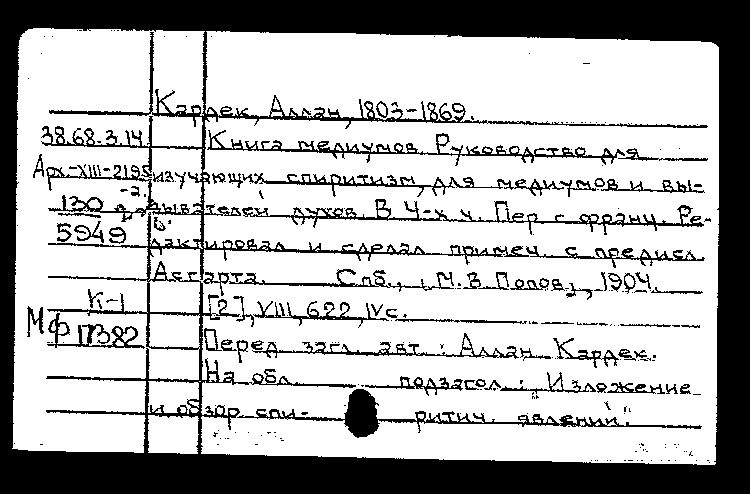 Кардек, Аллан, 1803-1869.
38.68.3.14. Книга медиумов. Руководство для
Арх.-XIII-2195 изучающих спиритизм, для медиумов и вы-
-2.
130 зывателей духов. В 4-х ч. Пер. с франц. Ре-
5949 дактировал и сделал примеч. с предисл.
Асгарта. Спб., [М.В. Попов], 1904.
К-1 [2], VIII, 622, IV с.
МФ 17382 Перед загл. авт.: Аллан Кардек.
На обл. подзагол.: "Изложение
и обзор спи- ритич. явлений."